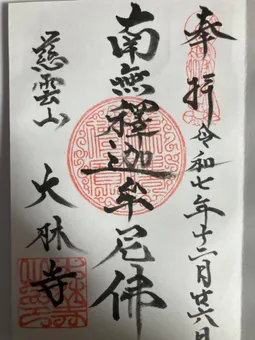 奉拝 令和七年十二月廿六日
南無釋迦牟尼佛
慈雲山
大林寺